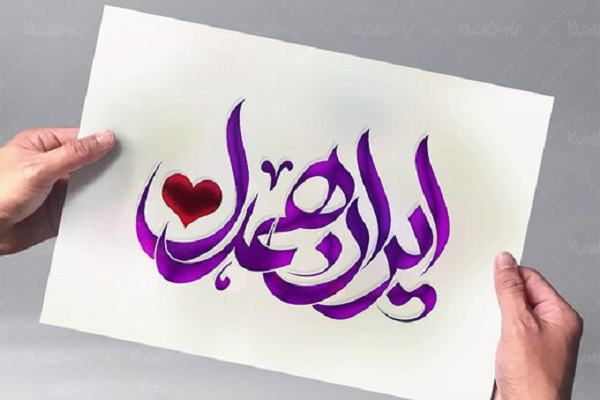 ایران همدل